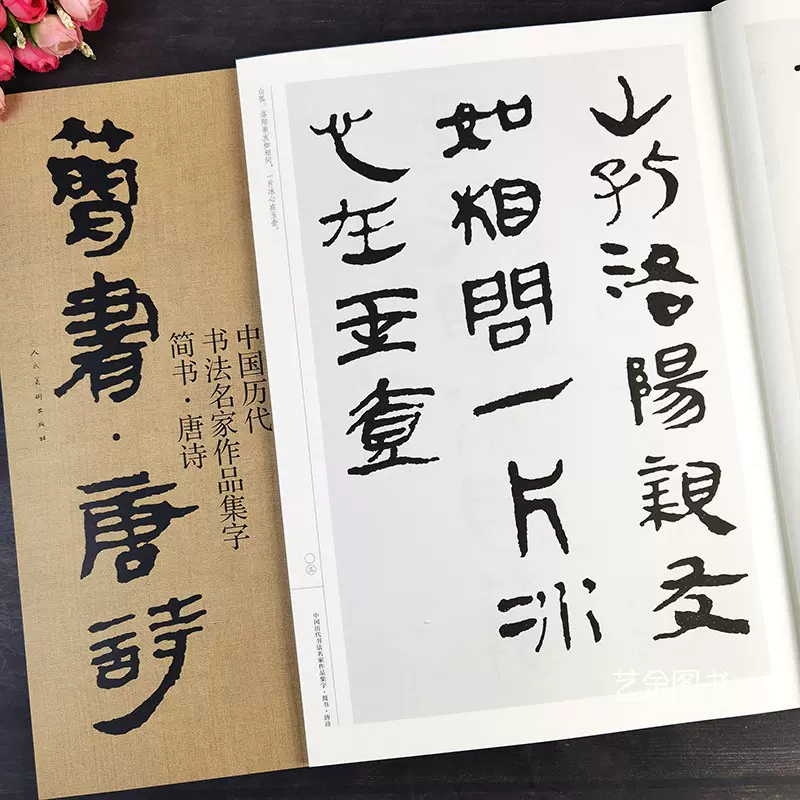 簡書·唐詩
中国历代
书法名家作品集字
简书·唐诗
人民美術出版社
山孤。洛阳亲友如相问，一片冰心在玉壶。
山孤洛陽親友
如相問一片冰
心在玉壺
〇三
中国历代书法名家作品集字·简书·唐诗
艺余图书